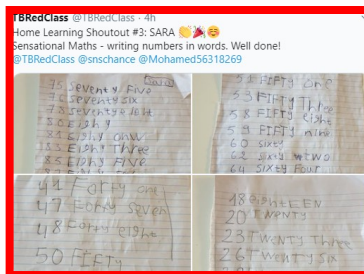 TBRedClass @TBRedClass · 4h
Home Learning Shoutout #3: SARA 👏🎉☺️
Sensational Maths - writing numbers in words. Well done!
@TBRedClass @snschance @Mohamed56318269
Sara
75 Seventy Five
76 Seventy Six
78 Seventy eight
80 Eighy
81 Eighy onw
83 Eighy Three
85 Eighy Five
51 FIFTy one
53 FIFTy Three
58 FIFTy eight
59 FIFTy nine
60 sixty
62 sixty wtwo
64 sixty Four
41 Forty one
47 Forty Seven
48 Forty eight
50 FIFTy
18 eightEEN
20 TWENTY
23 TWENTY Three
26 TWENTY Six